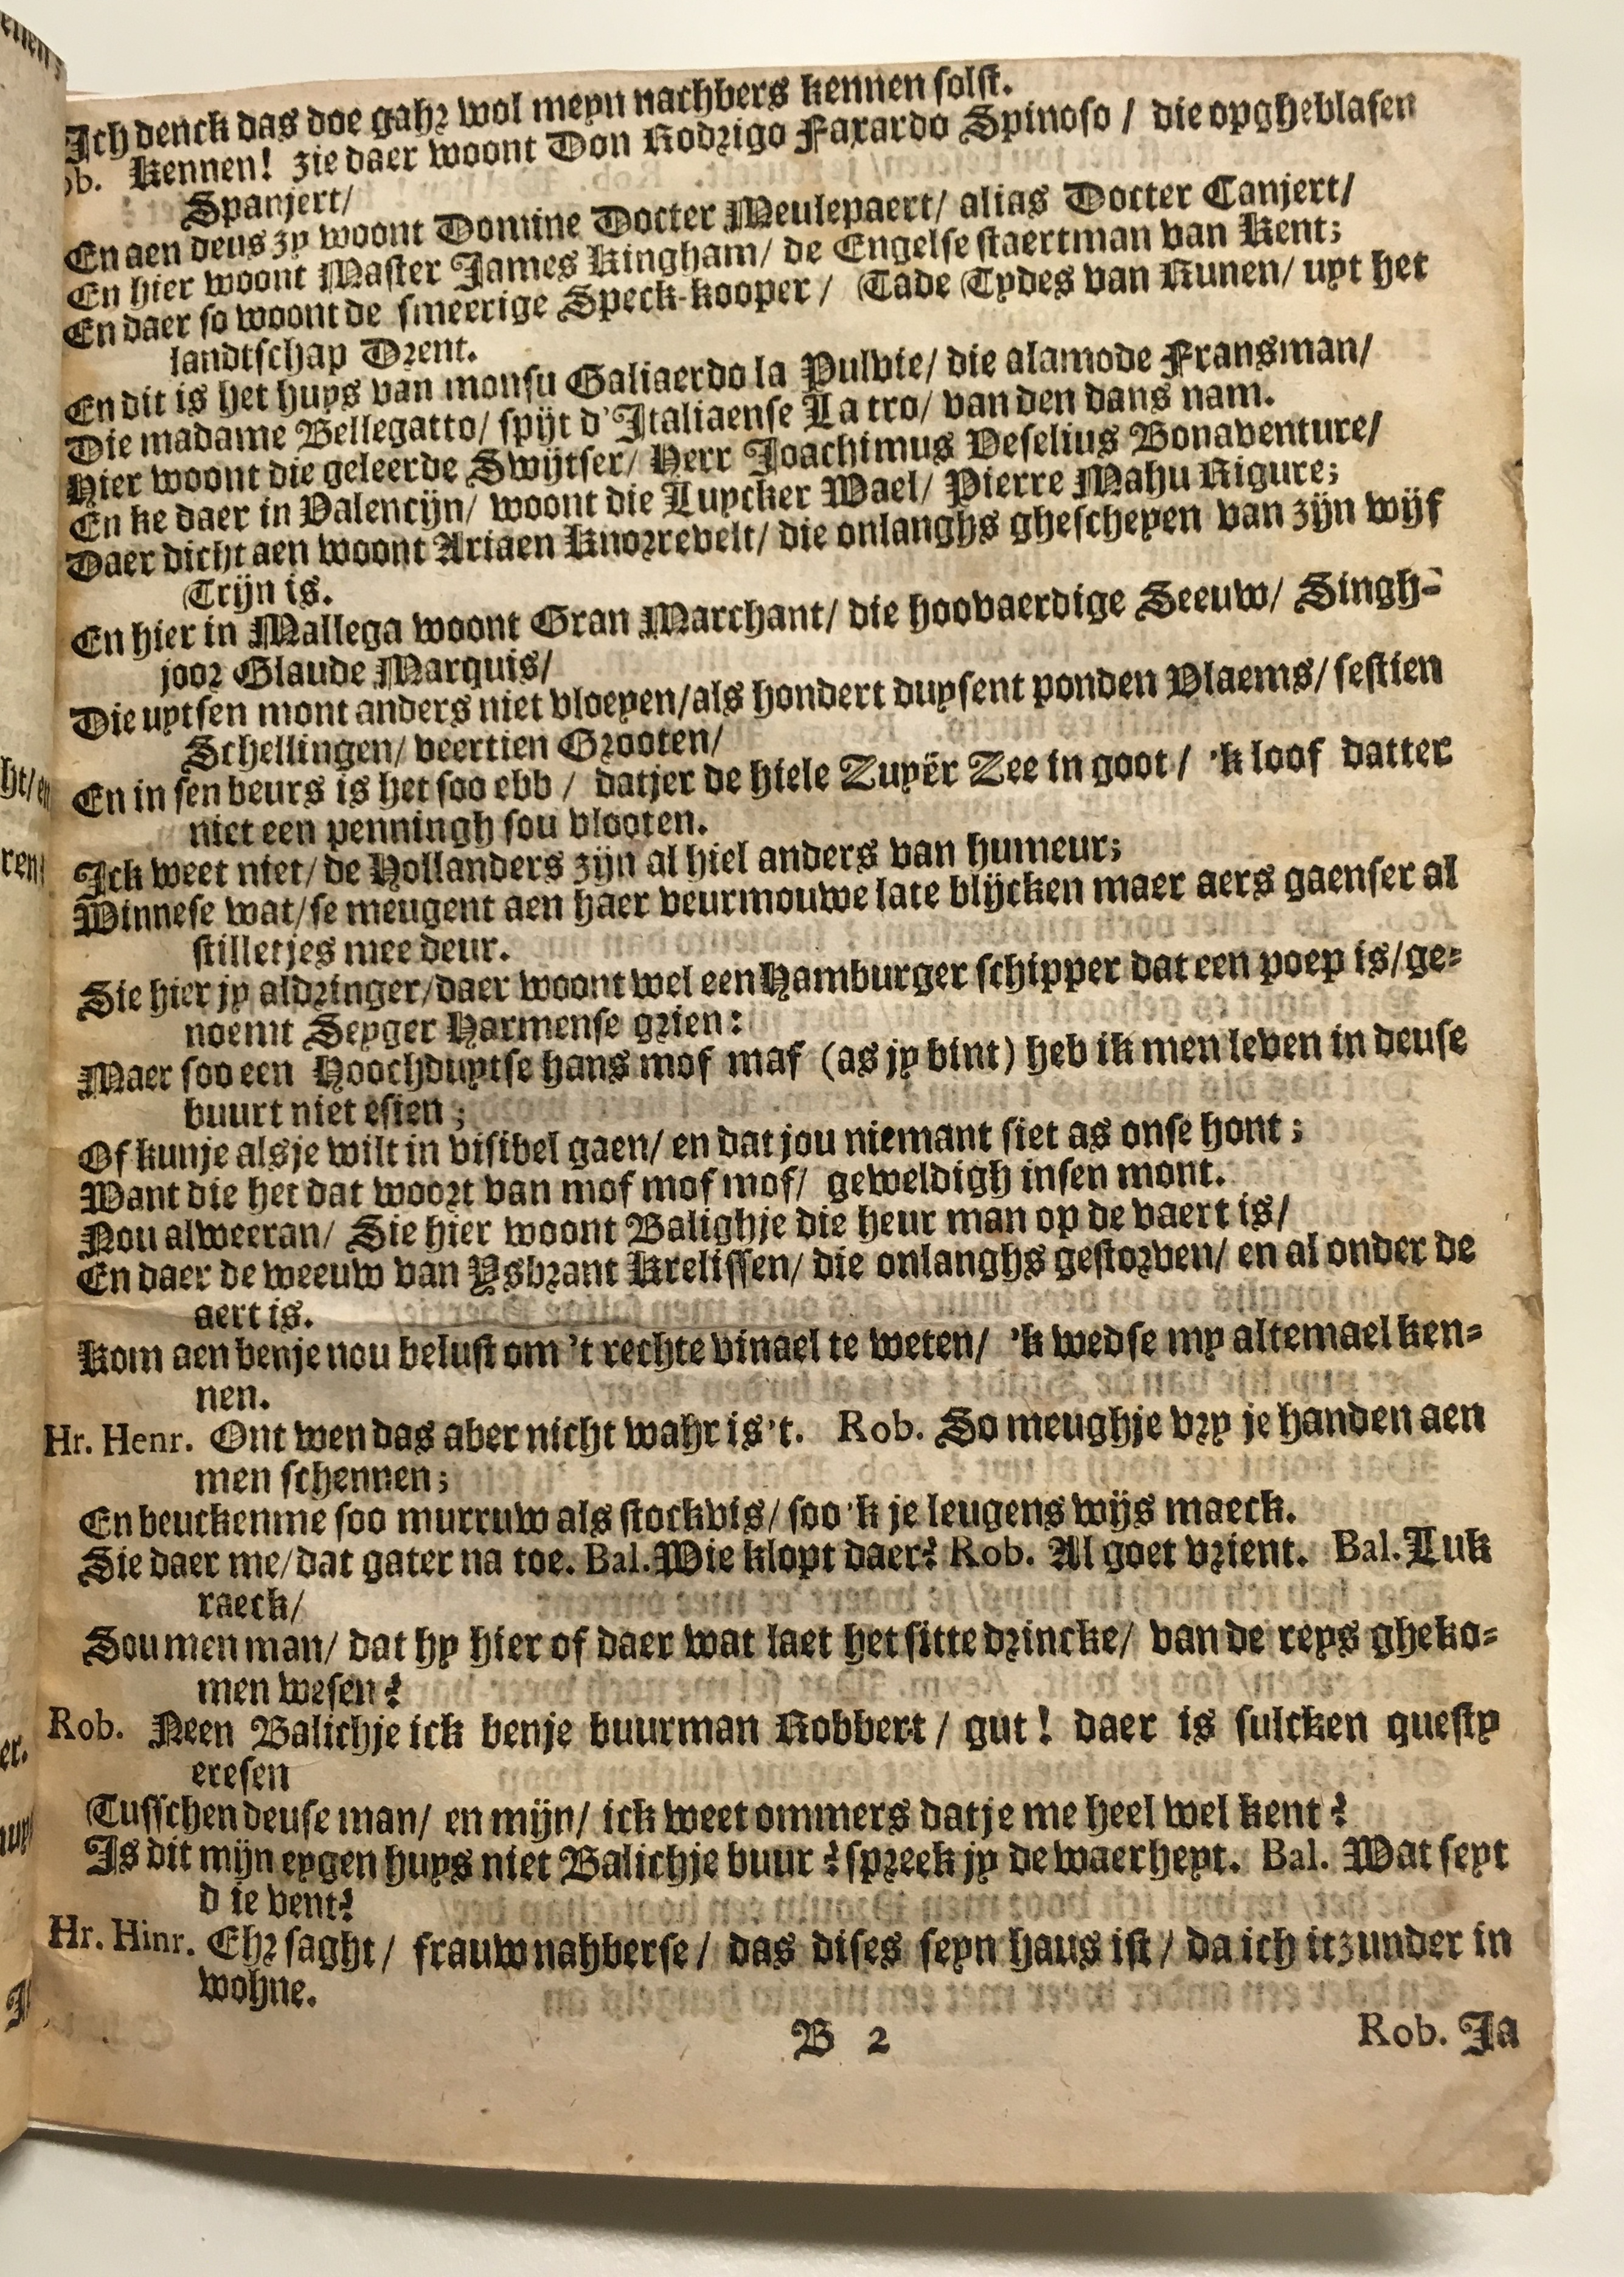 Ich denck das doe gahr wol meyn nachbers kennen solst.
ob. Kennen! zie daer woont Don Rodrigo Faxardo Spinoso / die opgheblasen
Spanjert/
En aen deus zy woont Domine Docter Meulepaert/ alias Docter Canjert/
En hier woont Master James Kingham/ de Engelse staertman van Kent;
En daer so woont de smeerige Speck-kooper / Tade Tydes van Kunen/ uyt het
landtschap Drent.
En dit is het huys van monsu Galiaerdo la Pulvie/ die alamode Fransman/
Die madame Bellegatto/ spijt d'Italiaense La tro/ van den dans nam.
Hier woont die geleerde Swijtser/ Herr Joachimus Veselius Bonaventure/
En ke daer in Valencijn/ woont die Luycker Wael/ Pierre Mahu Rigure;
Daer dicht aen woont Ariaen Knorrevelt/ die onlanghs ghescheyen van zijn wijf
Trijn is.
En hier in Mallega woont Gran Marchant/ die hoovaerdige Seeuw/ Singh-
joor Glaude Marquis/
Die uytsen mont anders niet vloeyen/als hondert duysent ponden Vlaems/ sestien
Schellingen/ veertien Grooten/
En in sen beurs is het soo ebb / datjer de hiele Zuyër Zee in goot / 'k loof datter
niet een penningh sou vlooten.
Ick weet niet/ de Hollanders zijn al hiel anders van humeur;
Winnese wat/se meugent aen haer veurmouwe late blijcken maer aers gaenser al
stilletjes mee deur.
Sie hier jy aldringer/daer woont wel een Hamburger schipper dat een poep is/ge-
noemt Seyger Harmense grien:
Maer soo een Hoochduytse hans mof maf (as jy bint) heb ik men leven in deuse
buurt niet esien;
Of kunje alsje wilt in visibel gaen/ en dat jou niemant siet as onse hont;
Want die het dat woort van mof mof mof/ geweldigh insen mont.
Nou alweeran/ Sie hier woont Balighje die heur man op de vaert is/
En daer de weeuw van Ysbrant Krelissen/ die onlanghs gestorven/ en al onder de
aert is.
Kom aen benje nou belust om 't rechte vinael te weten/ 'k wedse my altemael ken-
nen.
Hr. Henr. Ont wen das aber nicht wahr is't. Rob. So meughje vry je handen aen
men schennen;
En beuckenme soo murruw als stockvis/ soo 'k je leugens wijs maeck.
Sie daer me/dat gater na toe. Bal. Wie klopt daer? Rob. Al goet vrient. Bal. Luk
raeck/
Sou men man/ dat hy hier of daer wat laet het sitte drincke/ van de reys gheko-
men wesen?
Rob. Neen Balichje ick benje buurman Robbert / gut! daer is sulcken questy
eresen
Tusschen deuse man/ en mijn/ ick weet ommers datje me heel wel kent?
Is dit mijn eygen huys niet Balichje buur? spreek jy de waerheyt. Bal. Wat seyt
d ie vent?
Hr. Hinr. Ehr saght / frauw nahberse / das dises seyn haus ist / da ich itzunder in
wohne.
B 2
Rob. Ja